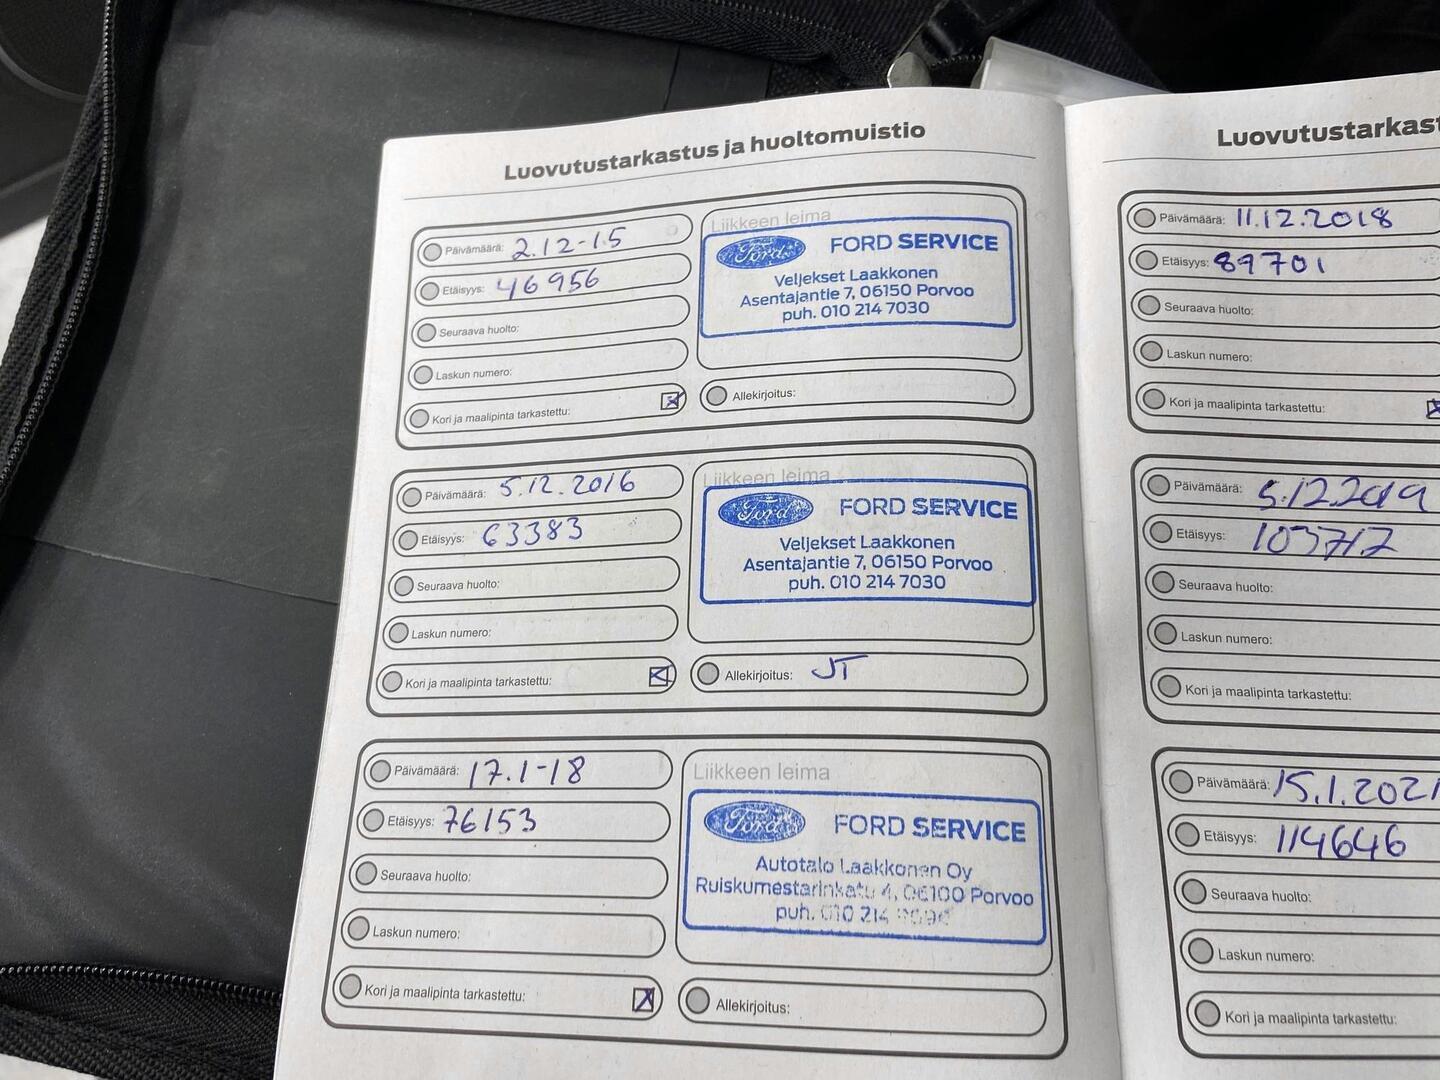 Luovutustarkastus ja huoltomuistio
Päivämäärä: 2.12-15
Etäisyys: 46956
Seuraava huolto:
Laskun numero:
Kori ja maalipinta tarkastettu:
Liikkeen leima
Ford
FORD SERVICE
Veljekset Laakkonen
Asentajantie 7, 06150 Porvoo
puh. 010 214 7030
Allekirjoitus:
Päivämäärä: 5.12.2016
Etäisyys: 63383
Seuraava huolto:
Laskun numero:
Kori ja maalipinta tarkastettu:
Liikkeen leima
Ford
FORD SERVICE
Veljekset Laakkonen
Asentajantie 7, 06150 Porvoo
puh. 010 214 7030
Allekirjoitus: JT
Päivämäärä: 17.1-18
Etäisyys: 76153
Seuraava huolto:
Laskun numero:
Kori ja maalipinta tarkastettu:
Liikkeen leima
Ford
FORD SERVICE
Autotalo Laakkonen Oy
Ruiskumestarinkatu 4, 06100 Porvoo
puh. 010 214
Allekirjoitus:
Luovutustarkast
Päivämäärä: 11.12.2018
Etäisyys: 89701
Seuraava huolto:
Laskun numero:
Kori ja maalipinta tarkastettu:
Päivämäärä: 5.12.2019
Etäisyys: 103717
Seuraava huolto:
Laskun numero:
Kori ja maalipinta tarkastettu:
Päivämäärä: 15.1.2021
Etäisyys: 114646
Seuraava huolto:
Laskun numero:
Kori ja maalipinta tarkastettu: